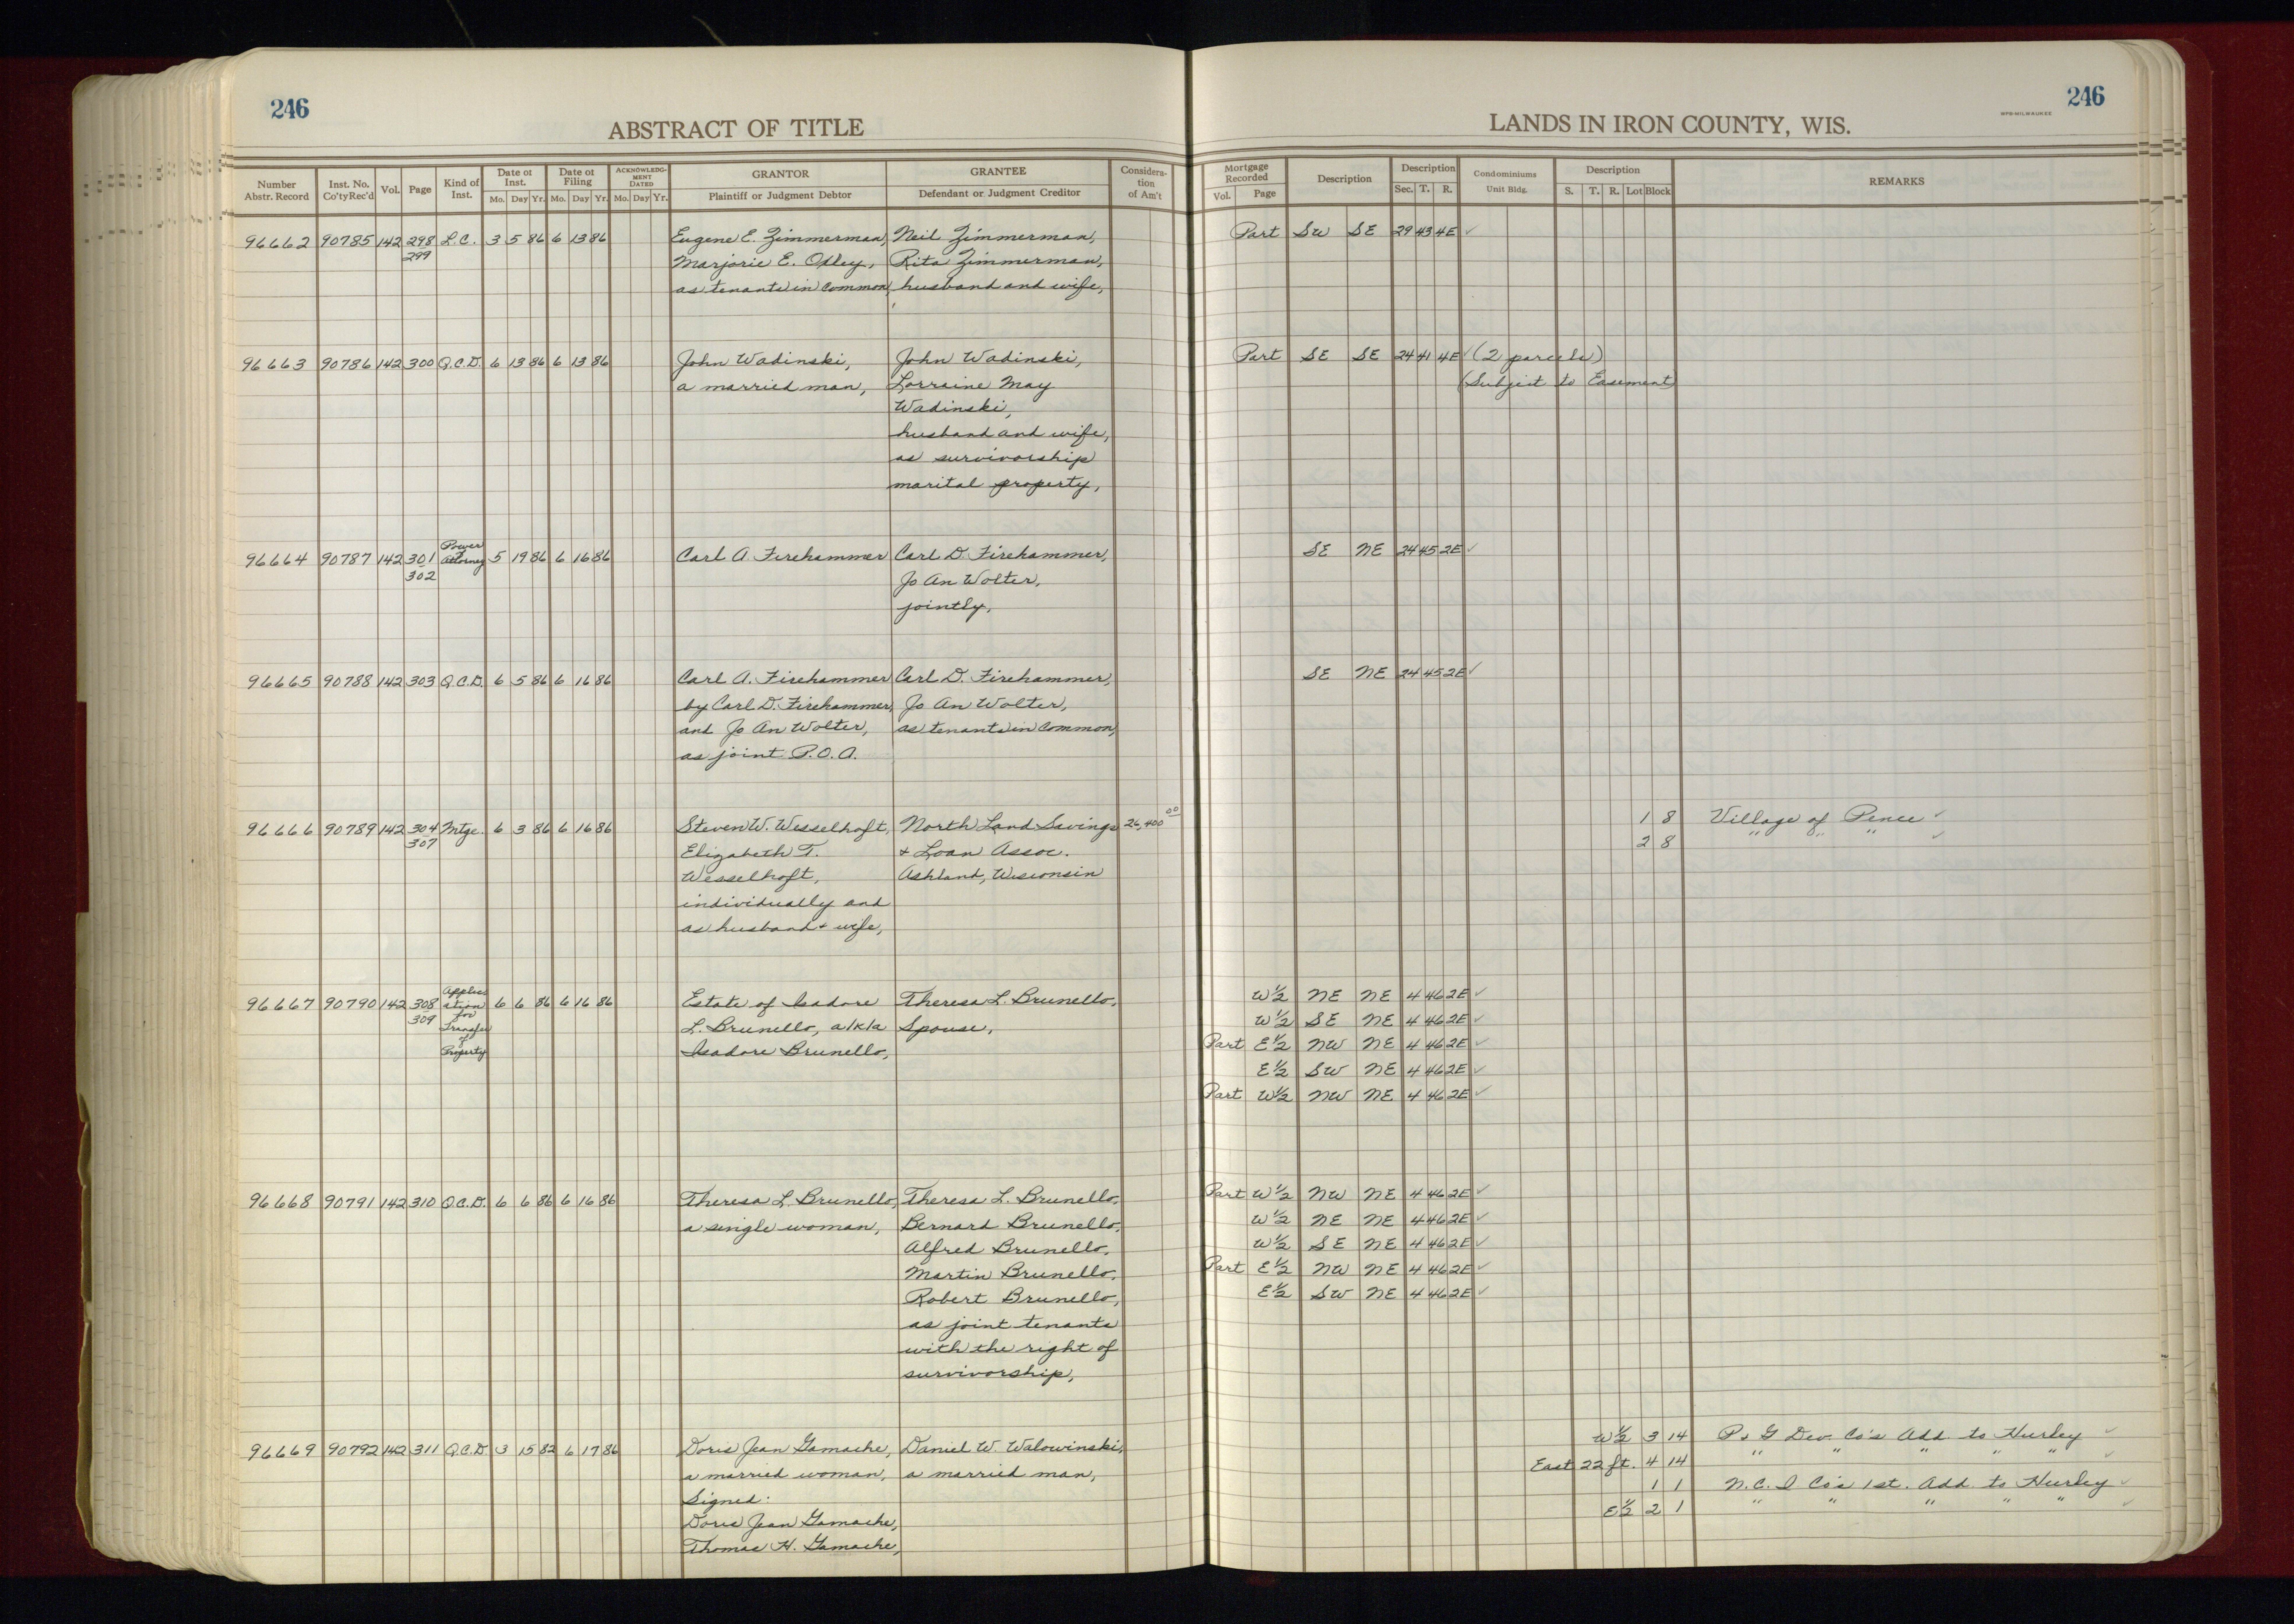 246
ABSTRACT OF TITLE
LANDS IN IRON COUNTY, WIS.
246
MPB-MILWAUKEE
Number Abstr. Record | Inst. No. Co'ty Rec'd | Vol. | Page | Kind of Inst. | Date of Inst. Mo. Day Yr. | Date of Filing Mo. Day Yr. | ACKNOWLEDGMENT DATED Mo. Day Yr. | GRANTOR Plaintiff or Judgment Debtor | GRANTEE Defendant or Judgment Creditor | Consideration of Am't | Mortgage Recorded Vol. Page | Description | Description Sec. T. R. | Condominiums Unit Bldg. | Description S. T. R. Lot Block | REMARKS
96662 90785 142 298 L.C. 3 5 86 6 13 86 Eugene E. Zimmerman, Neil Zimmerman, Part SW SE 29 43 4E ✓
299 Marjorie E. Oxley, Rita Zimmerman,
as tenants in common, husband and wife,
96663 90786 142 300 Q.C.D. 6 13 86 6 13 86 John Wadinski, John Wadinski, Part SE SE 24 41 4E ✓ (2 parcels)
a married man, Lorraine May (Subject to Easement)
Wadinski,
husband and wife,
as survivorship
marital property,
96664 90787 142 301 Power of Attorney 5 19 86 6 16 86 Carl A. Firehammer Carl D. Firehammer, SE NE 24 45 2E ✓
302 Jo An Wolter,
jointly,
96665 90788 142 303 Q.C.D. 6 5 86 6 16 86 Carl A. Firehammer Carl D. Firehammer, SE NE 24 45 2E ✓
by Carl D. Firehammer, Jo An Wolter,
and Jo An Wolter, as tenants in common,
as joint P.O.A.
96666 90789 142 304 Mtge. 6 3 86 6 16 86 Steven W. Wesselhoft, North Land Savings 26,400 00 1 8 Village of Pence ✓
307 Elizabeth T. + Loan Assoc. 2 8 " " " ✓
Wesselhoft, Ashland, Wisconsin
individually and
as husband + wife,
96667 90790 142 308 Application for Transfer of Property 6 6 86 6 16 86 Estate of Isadore Theresa L. Brunello, W½ NE NE 4 46 2E ✓
309 L. Brunello, a/k/a Spouse, W½ SE NE 4 46 2E ✓
Isadore Brunello, Part E½ NW NE 4 46 2E ✓
E½ SW NE 4 46 2E ✓
Part W½ NW NE 4 46 2E ✓
96668 90791 142 310 Q.C.D. 6 6 86 6 16 86 Theresa L. Brunello, Theresa L. Brunello, Part W½ NW NE 4 46 2E ✓
a single woman, Bernard Brunello, W½ NE NE 4 46 2E ✓
Alfred Brunello, W½ SE NE 4 46 2E ✓
Martin Brunello, Part E½ NW NE 4 46 2E ✓
Robert Brunello, E½ SW NE 4 46 2E ✓
as joint tenants
with the right of
survivorship,
96669 90792 142 311 Q.C.D 3 15 82 6 17 86 Doris Jean Gamache, Daniel W. Walowinski, W½ 3 14 P. + G Dev. Co's Add. to Hurley ✓
a married woman, a married man, East 22 ft. 4 14 " " " " " ✓
Signed: 1 1 N.C.I Co's 1st. Add. to Hurley ✓
Doris Jean Gamache, E½ 2 1 " " " " " ✓
Thomas H. Gamache,